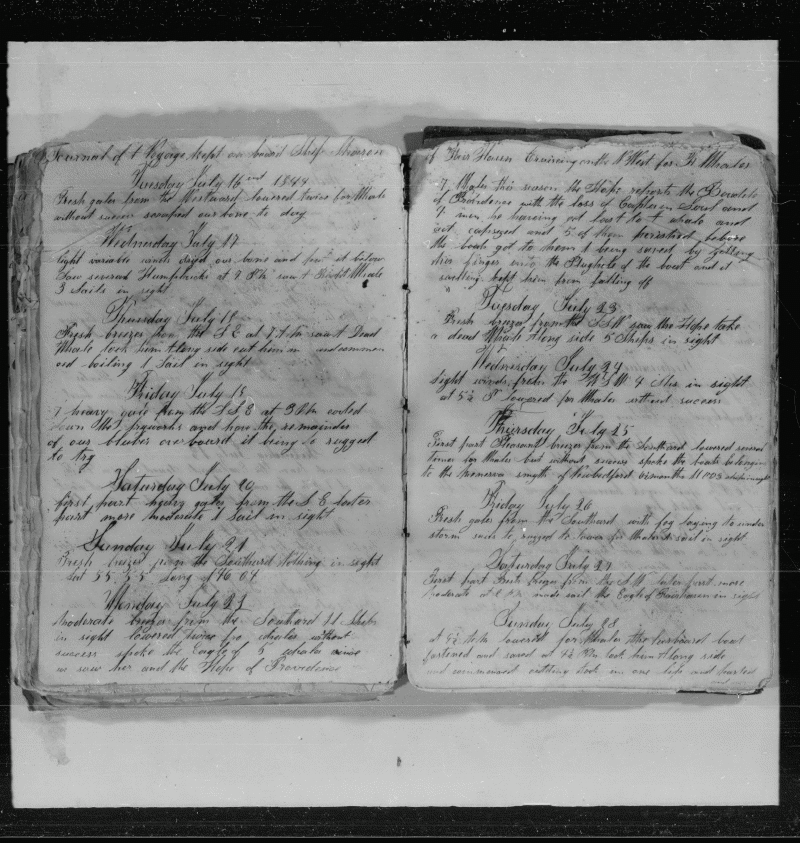 Journal of A Voyage kept on board Ship Sharon
Tuesday July 16 1844
Fresh gales from the Westward lowered twice for Whale
without success our bone to day
Wednesday July 17
light variable winds dryd our bone and put it below
Saw several Humpbacks at 8 PM saw A Right Whale
3 Sails in sight
Thursday July 18
Fresh breezes from the S E at 7 AM saw A Dead
Whale took him Along side cut him in and commen
ced boiling 1 Sail in sight
Friday July 19
heavy gale from the S S E at 3 PM cooled
down the tryworks and hove the remainder
of our bluber overboard it being to rugged
to try
Saturday July 20
first part heavy gales from the S E later
part more moderate 1 Sail in sight
Sunday July 21
Fresh breezes from the Southard Nothing in sight
Lat 55.55 Long 146.04
Monday July 22
Moderate breezes from the Southard 11 Ships
in sight lowered twice for whales without
success spoke the Eagle of 5 whales
saw her and the Hope of Providence
of Fair Haven Cruising on the N West for Rt Whales
7 Whales this season the Hope reports the
of Providence with the loss of Captain and
7 men he having got fast to A whale and
got capsized and 5 of them perished before
the boats got to them 1 being saved by getting
his finger into the Plughole of the boat and it
swelling kept him from falling off
Tuesday July 23
Fresh breezes from the S S W saw the Hope take
a dead Whale Along side 5 Ships in sight
Wednesday July 24
Light winds from the W S W 4 Ships in sight
at 5½ P lowered for Whales without success
Thursday July 25
First part Pleasant breezes from the Southard lowered several
times for Whales but without success spoke the boats belonging
to the Menerva Smyth of Newbedford months
Friday July 26
Fresh gales from the Southard with fog laying to under
storm sails to rugged to lower for Whales sail in sight
Saturday July 27
First part Fresh breezes from the S W later part more
moderate at PM made sail the Eagle of Fairhaven in sight
Sunday July 28
at lowered for Whales the larboard boat
fastened and saved at 4½ PM took him Along side
and commenced cutting took in one and parted